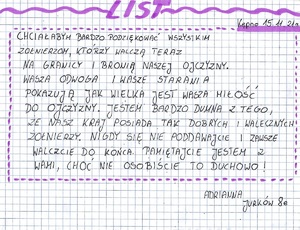 LIST
Kępno 15.11.21r.
CHCIAŁABYM BARDZO PODZIĘKOWAĆ WSZYSTKIM
ŻOŁNIERZOM, KTÓRZY WALCZĄ TERAZ
NA GRANICY I BRONIĄ NASZEJ OJCZYZNY.
WASZA ODWAGA I WASZE STARANIA
POKAZUJĄ JAK WIELKA JEST WASZA MIŁOŚĆ
DO OJCZYZNY. JESTEM BARDZO DUMNA Z TEGO,
ŻE NASZ KRAJ POSIADA TAK DOBRYCH I WALECZNYCH
ŻOŁNIERZY. NIGDY SIĘ NIE PODDAWAJCIE I ZAWSZE
WALCZCIE DO KOŃCA. PAMIĘTAJCIE JESTEM Z
WAMI, CHOĆ NIE OSOBIŚCIE TO DUCHOWO!
ADRIANNA
JURKÓW 8a